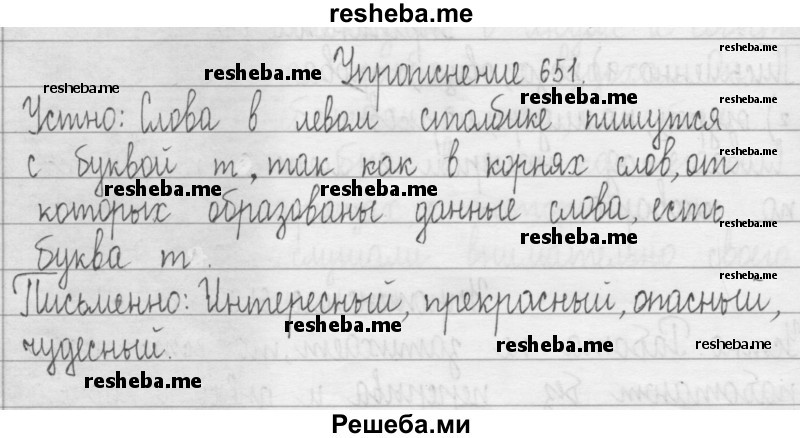 resheba.me
Упрожнение 651
Устно: Слова в левом столбике пишутся
с буквой т, так как в корнях слов, от
которых образованы данные слова, есть
буква т.
Письменно: Интересный, прекрасный, опасный,
чудесный.
resheba.me
resheba.me
resheba.me
resheba.me
resheba.me
resheba.me
resheba.me
resheba.me
resheba.me
resheba.me
resheba.me
resheba.me
resheba.me
Решеба.ми